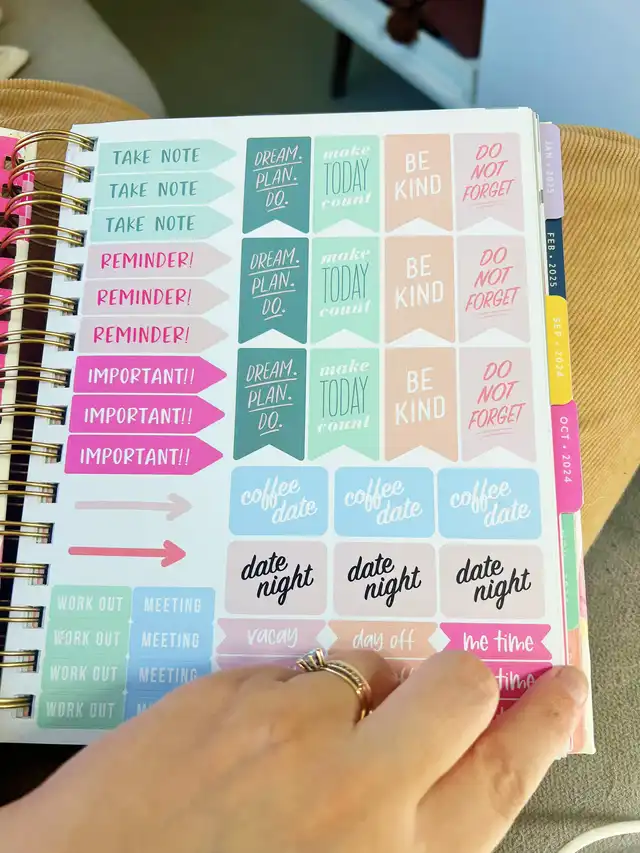 TAKE NOTE
TAKE NOTE
TAKE NOTE
REMINDER!
REMINDER!
REMINDER!
IMPORTANT!!
IMPORTANT!!
IMPORTANT!!
DREAM.
PLAN.
DO.
make
TODAY
count
BE
KIND
DO
NOT
FORGET
DREAM.
PLAN.
DO.
make
TODAY
count
BE
KIND
DO
NOT
FORGET
DREAM.
PLAN.
DO.
make
TODAY
count
BE
KIND
DO
NOT
FORGET
coffee
date
coffee
date
coffee
date
date
night
date
night
date
night
WORK OUT
MEETING
WORK OUT
MEETING
WORK OUT
MEETING
WORK OUT
vacay
day off
me time
time
JAN • 2025
FEB • 2025
SEP • 2024
OCT • 2024